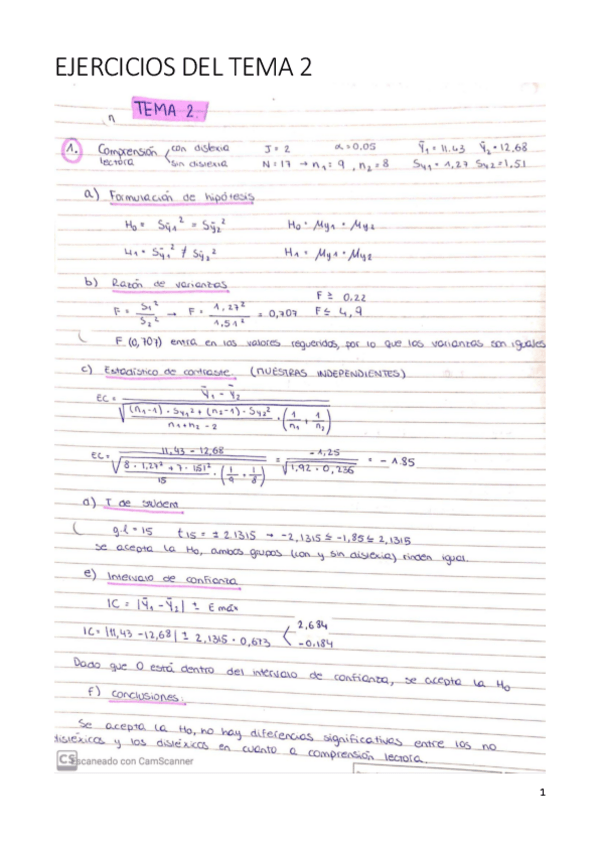 EJERCICIOS DEL TEMA 2
n
TEMA 2.
1. Comprensión lectora < con dislexia sin dislexia J = 2 α = 0,05 Ȳ₁ = 11,43 Ȳ₂ = 12,68
N = 17 → n₁ = 9, n₂ = 8 Sy₁ = 1,27 Sy₂ = 1,51
a) Formulación de hipótesis
H₀ = Sȳ₁² = Sȳ₂² H₀ = μy₁ = μy₂
H₁ = Sȳ₁² ≠ Sȳ₂² H₁ = μy₁ ≠ μy₂
b) Razón de varianzas
F = S₁² / S₂² → F = 1,27² / 1,51² = 0,707 F ≥ 0,22
F ≤ 4,9
F (0,707) entra en los valores requeridos, por lo que las varianzas son iguales
c) Estadístico de contraste (MUESTRAS INDEPENDIENTES)
EC = (Ȳ₁ - Ȳ₂) / √( ((n₁-1) · Sy₁² + (n₂-1) · Sy₂²) / (n₁+n₂-2) · (1/n₁ + 1/n₂) )
EC = (11,43 - 12,68) / √( (8 · 1,27² + 7 · 1,51²) / 15 · (1/9 + 1/8) ) = -1,25 / √(1,92 · 0,236) = -1.85
d) T de student
g.l = 15 t15 = ± 2,1315 → -2,1315 ≤ -1,85 ≤ 2,1315
se acepta la H₀, ambos grupos (con y sin dislexia) rinden igual.
e) Intervalo de confianza
IC = |Ȳ₁ - Ȳ₂| ± E máx
IC = |11,43 - 12,68| ± 2,1315 · 0,673 < 2,684 -0,184
Dado que 0 está dentro del intervalo de confianza, se acepta la H₀
f) conclusiones.
Se acepta la H₀, no hay diferencias significativas entre los no
disléxicos y los disléxicos en cuanto a comprensión lectora.
CS Escaneado con CamScanner
1